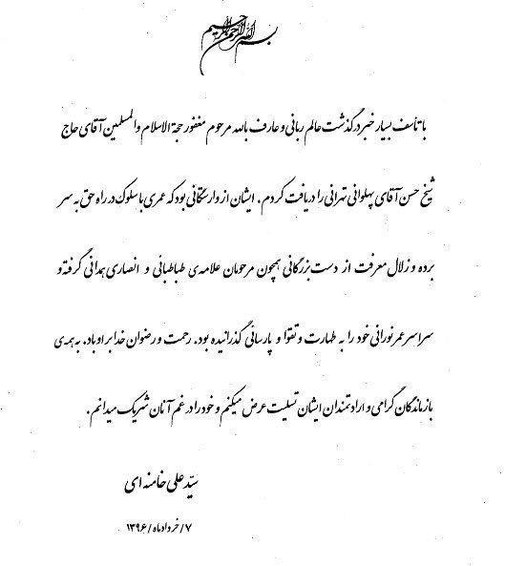 بسم الله الرحمن الرحیم
با تأسف بسیار خبر درگذشت عالم ربانی و عارف بالله مرحوم مغفور حجة الاسلام والمسلمین آقای حاج
شیخ حسن آقای پهلوانی تهرانی را دریافت کردم. ایشان از وارستگانی بود که عمری با سلوک در راه حق به سر
برده و زلال معرفت از دست بزرگانی همچون مرحومان علامه‌ی طباطبائی و انصاری همدانی گرفته و
سراسر عمر نورانی خود را به طهارت و تقوا و پارسائی گذرانیده بود. رحمت و رضوان خدا بر او باد. به همه‌ی
بازماندگان گرامی و ارادتمندان ایشان تسلیت عرض میکنم و خود را در غم آنان شریک میدانم.
سیّد علی خامنه ای
۷/خرداد ماه/۱۳۹۶